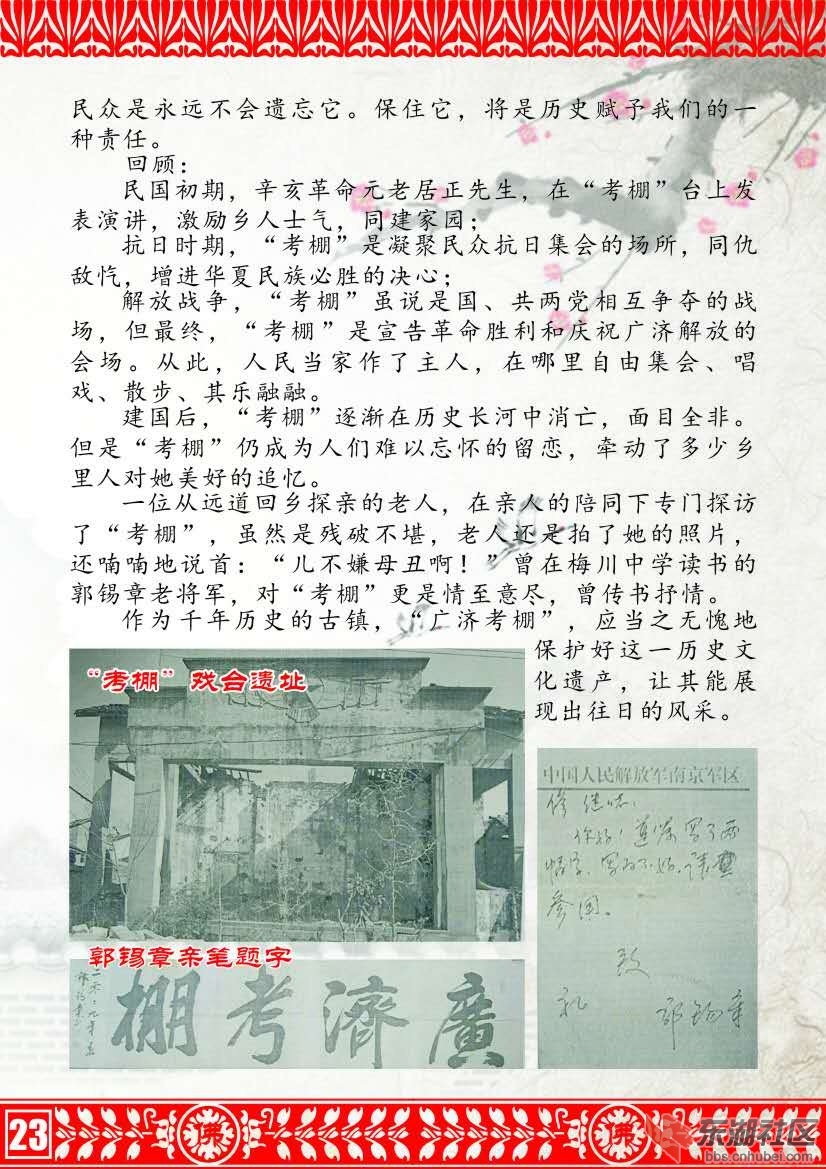 民众是永远不会遗忘它。保住它，将是历史赋予我们的一
种责任。
回顾：
民国初期，辛亥革命元老居正先生，在“考棚”台上发
表演讲，激励乡人士气，同建家园；
抗日时期，“考棚”是凝聚民众抗日集会的场所，同仇
敌忾，增进华夏民族必胜的决心；
解放战争，“考棚”虽说是国、共两党相互争夺的战
场，但最终，“考棚”是宣告革命胜利和庆祝广济解放的
会场。从此，人民当家作了主人，在哪里自由集会、唱
戏、散步、其乐融融。
建国后，“考棚”逐渐在历史长河中消亡，面目全非。
但是“考棚”仍成为人们难以忘怀的留恋，牵动了多少乡
里人对她美好的追忆。
一位从远道回乡探亲的老人，在亲人的陪同下专门探访
了“考棚”，虽然是残破不堪，老人还是拍了她的照片，
还喃喃地说首：“儿不嫌母丑啊！”曾在梅川中学读书的
郭锡章老将军，对“考棚”更是情至意尽，曾传书抒情。
作为千年历史的古镇，“广济考棚”，应当之无愧地
保护好这一历史文
化遗产，让其能展
现出往日的风采。
“考棚”戏台遗址
郭锡章亲笔题字
廣濟考棚
中国人民解放军南京军区
你好！遵嘱写了两
写的不好，
参阅。
致
礼
郭锡章
23
佛
佛
东湖社区
bbs.cnhubei.com